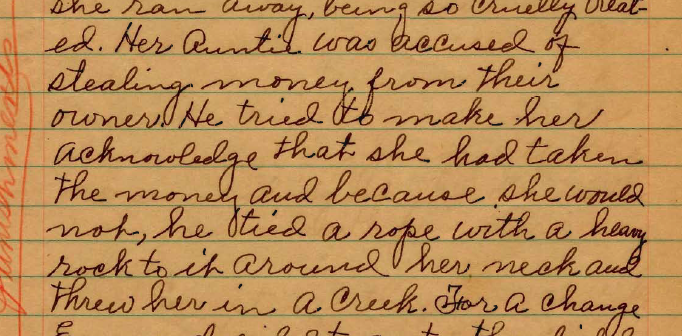 she ran away, being so cruelly treat-
ed. Her Auntie was accused of
stealing money from their
owner. He tried to make her
acknowledge that she had taken
the money and because she would
not, he tied a rope with a heavy
rock to it around her neck and
threw her in a Creek. For a change
Punishments